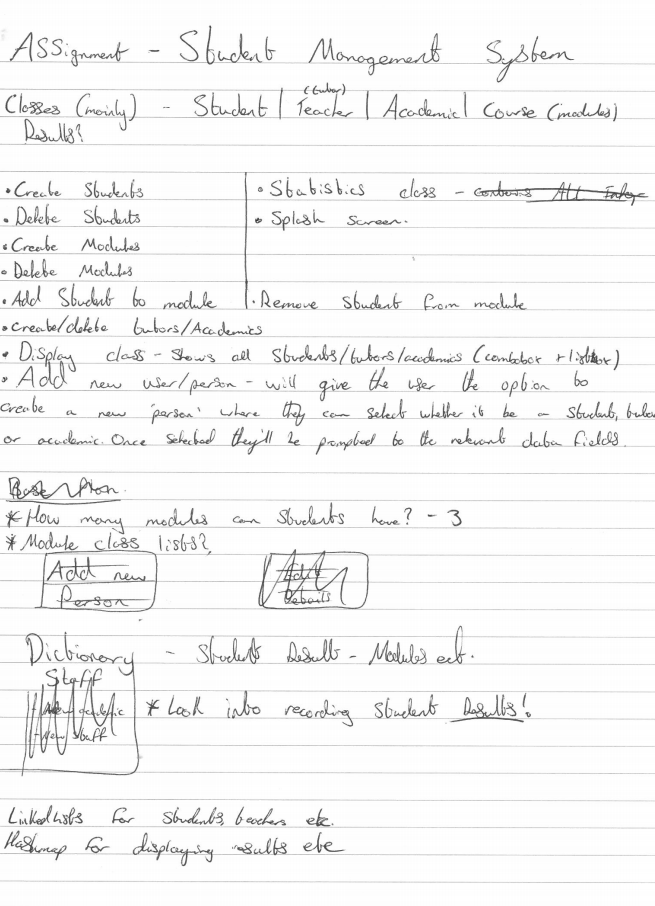 Assignment - Student Management System
(tutor)
Classes (mainly) - Student | Teacher | Academic | Course (modules)
Results?
• Create Students
• Delete Students
• Create Modules
• Delete Modules
• Statistics class - contains ALL
• Splash Screen.
• Add Student to module | • Remove Student from module
• Create/delete tutors/Academics
• Display class - Shows all Students/tutors/academics (combobox + listbox)
• Add new user/person - will give the user the option to
create a new 'person' where they can select whether it be a student, tutor
or academic. Once selected they'll be prompted to the relevant data fields.
* How many modules can Students have? - 3
* Module class lists?
Add new
Person
Details
Dictionary - Students Results - Modules ect.
Staff
* Look into recording student Results!
Linked Lists for students, teachers etc.
Hashmap for displaying results etc